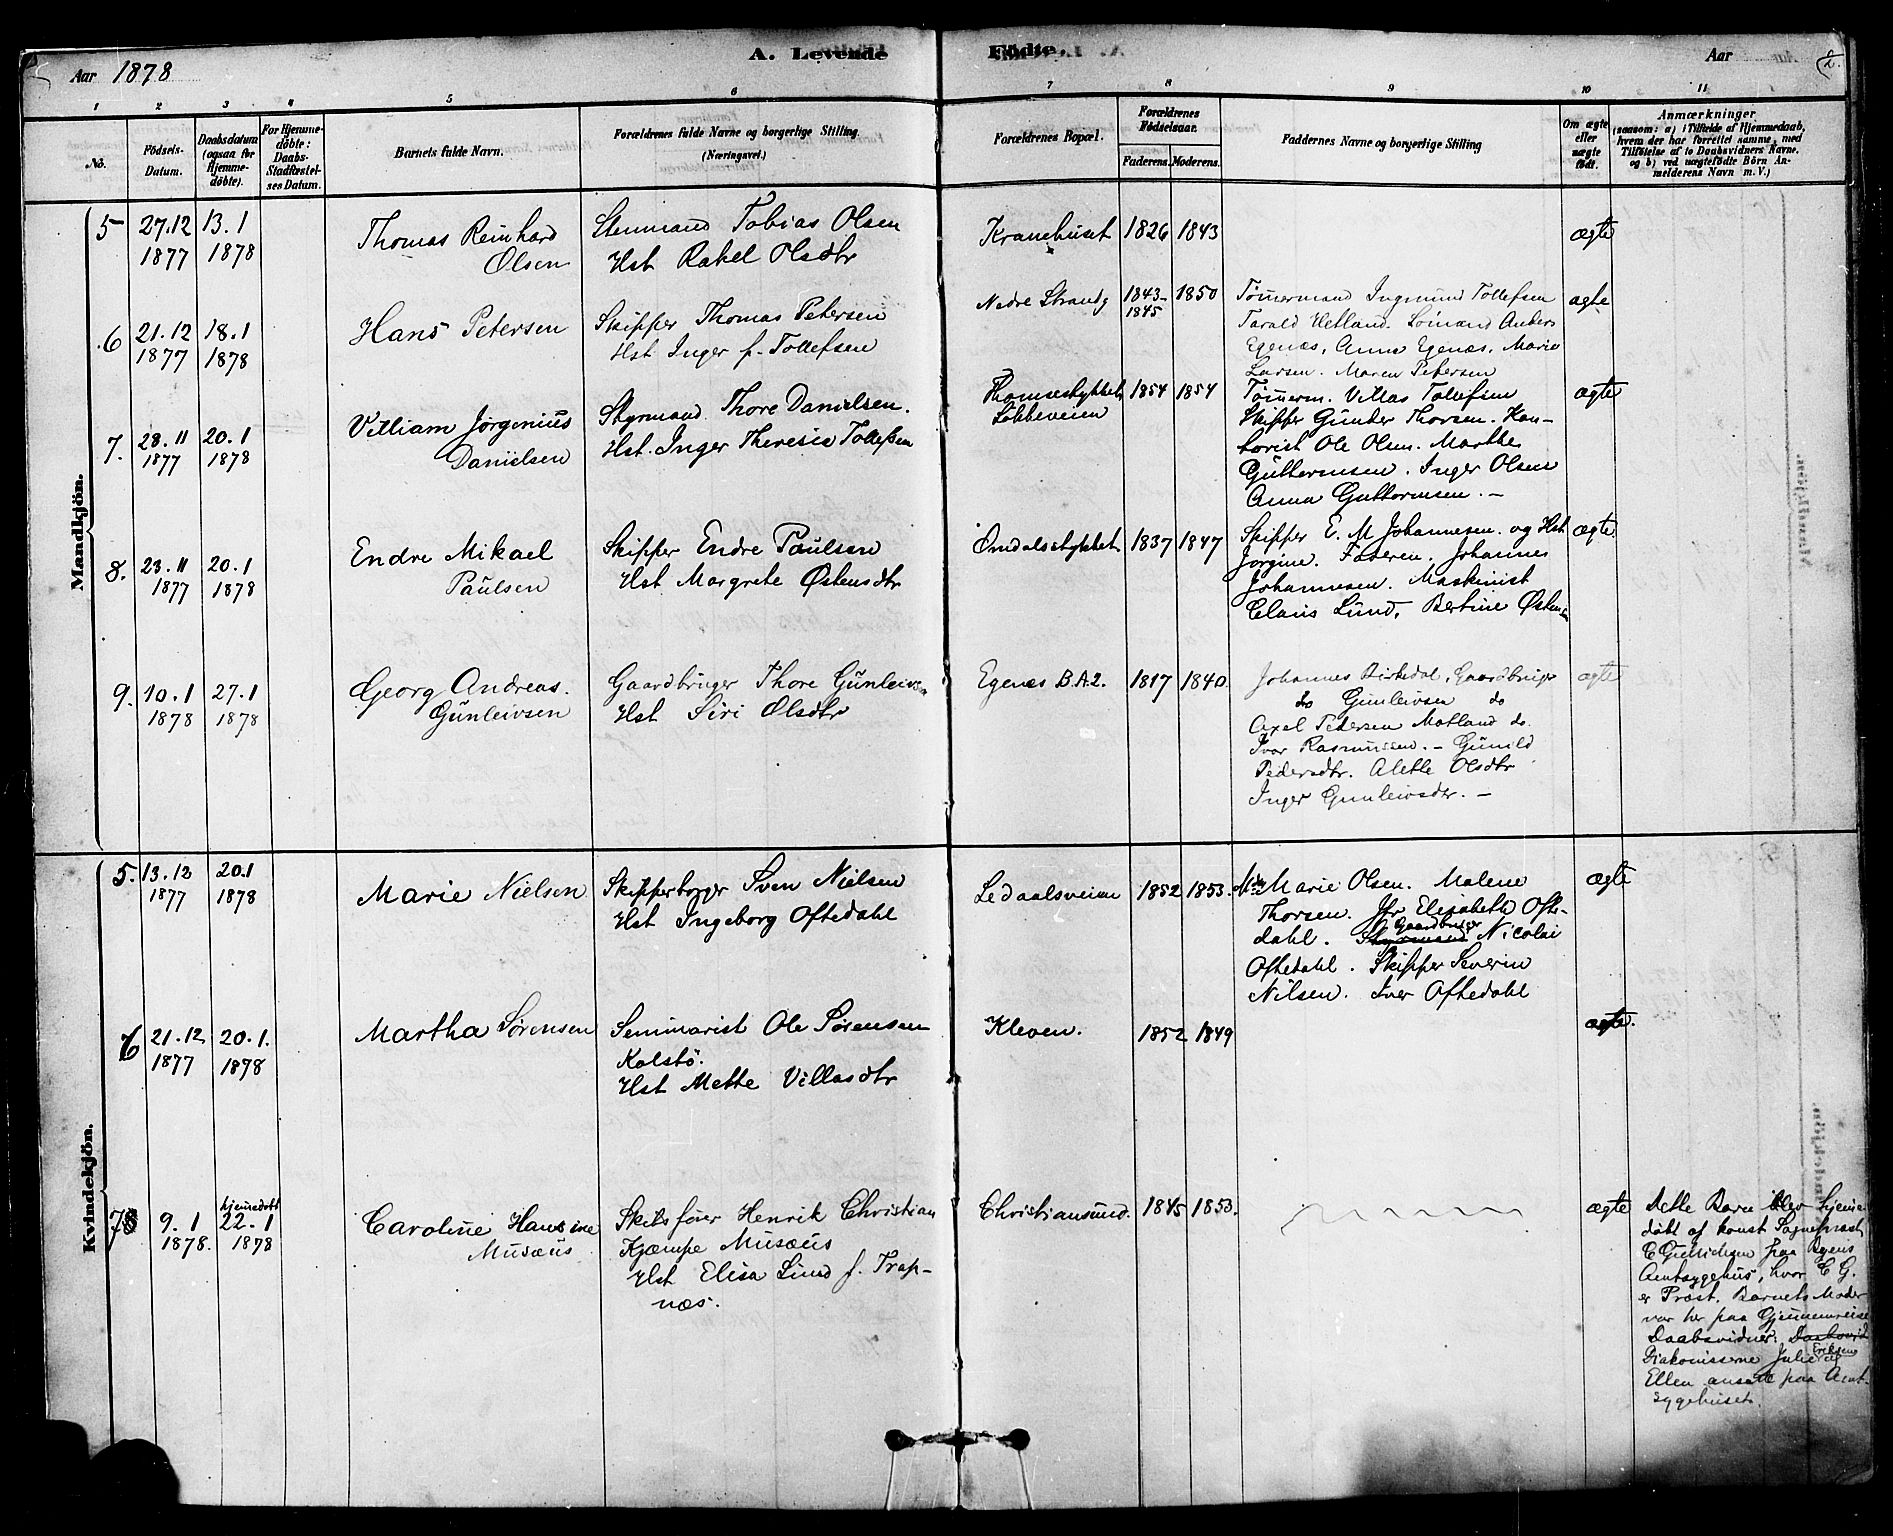 A. Levende Födte.
Aar 1878
Aar
2.
1 2 3 4 5 6 7 8 9 10 11
No.
Födsels-Datum.
Daabsdatum (ogsaa for Hjemme-döbte).
For Hjemme-döbte: Daabs-Stadfæstel-ses Datum.
Barnets fulde Navn.
Forældrenes fulde Navne og borgerlige Stilling.
(Næringsvei.)
Forældrenes Bopæl.
Forældrenes Födselsaar.
Faderens. Moderens.
Faddernes Navne og borgerlige Stilling
Om ægte eller uægte födt.
Anmærkninger
(saasom: a) i Tilfælde af Hjemmedaab,
hvem der har forrettet samme, med
Tilföielse af to Daabsvidners Navne,
og b) ved uægtefödte Börn An-
melderens Navn m. V.)
Mandkjön.
5 27.12 1877 13.1 1878
Thomas Reinhard
Olsen
Stenmand Tobias Olsen
Hst Rakel Olsdtr
Kranehuset 1826 1843
ægte
6 21.12 1877 18.1 1878
Hans Petersen
Skipper Thomas Petersen
Hst. Inger f. Tollefsen
Nedre Strandg 1843- 1845 1850
Tømermand Ingmund Tollefsen
Tarald Hetland. Loimand Anders
Egenæs, Anna Egenæs, Maria
Larsen. Maren Petersen
ægte
7. 28.11 1877 20.1 1878
Villiam Jørgenius
Danielsen
Styrmand Thore Danielsen.
Hst. Inger Theresie Tollefsen
Thomsestykket
Løkkeveien
1854 1854
Tømerm. Villas Tollefsen
Skipper Gunder Thorsen. Kon-
torist Ole Olsen. Marthe
Guttormsen. Inger Olsen
Anna Guttormsen. -
ægte
8. 23.11 1877 20.1 1878
Endre Mikael
Paulsen
Skipper Endre Paulsen
Hst Margrete Østensdtr
Omdalsstykket 1837 1847
Skipper E. M Johannesen. og Hst
Jorgine. Faderen. Johannes
Johannesen. Maskinist
Claus Lund, Bertine Østensen
ægte
9. 10.1 1878 27.1 1878
Georg Andreas.
Gunleivsen
Gaardbruger Thore Gunleivsen
Hst Siri Olsdtr
Egenæs B.A.2. 1817 1840
Johannes Birkedal, Gaardbruger
do Gunleivsen do
Axel Pedersen Motland do.
Ivar Rasmussen. - Gunild
Pedersdtr. Alette Olsdtr
Inger Gunleivsdtr. -
ægte
Kvindekjön.
5. 13.12 1877 20.1 1878
Marie Nielsen
Skipperborger Sven Nielsen
Hst Ingeborg Oftedahl
Ledaalsveien 1852 1853.
Marie Olsen. Malene
Thorsen. Jfr Elisabeth Ofte-
dahl. Gaardbruger Styrmand Nicolai
Oftedahl. Skipper Severin
Nilsen. Iver Oftedahl
ægte
6 21.12 1877 20.1. 1878
Martha Sørensen
Seminarist Ole Sørensen
Kolstø.
Hst Mette Villasdtr
Kleven. 1852 1849
ægte.
7 9.1 1878. hjemmedøbt 22.1 1878
Caroline Hansine
Musæus
Skibsfører Henrik Christian
Kjæmpe Musæus
Hst Elisa Lund f. Trap-
næs.
Christiansund. 1845 1853.
ægte
Dette Barn blev hjemme
døbt af konst Sognepræst
E Gulliksen paa Byens
Amtsygehus, hvor E G.
er Præst. Barnets Moder
var her paa Gjennemreise
Daabsvidner: Daabsvid
Diakonisserne Julie Eriksen og
Ellen ansatte paa Amt-
sygehuset.